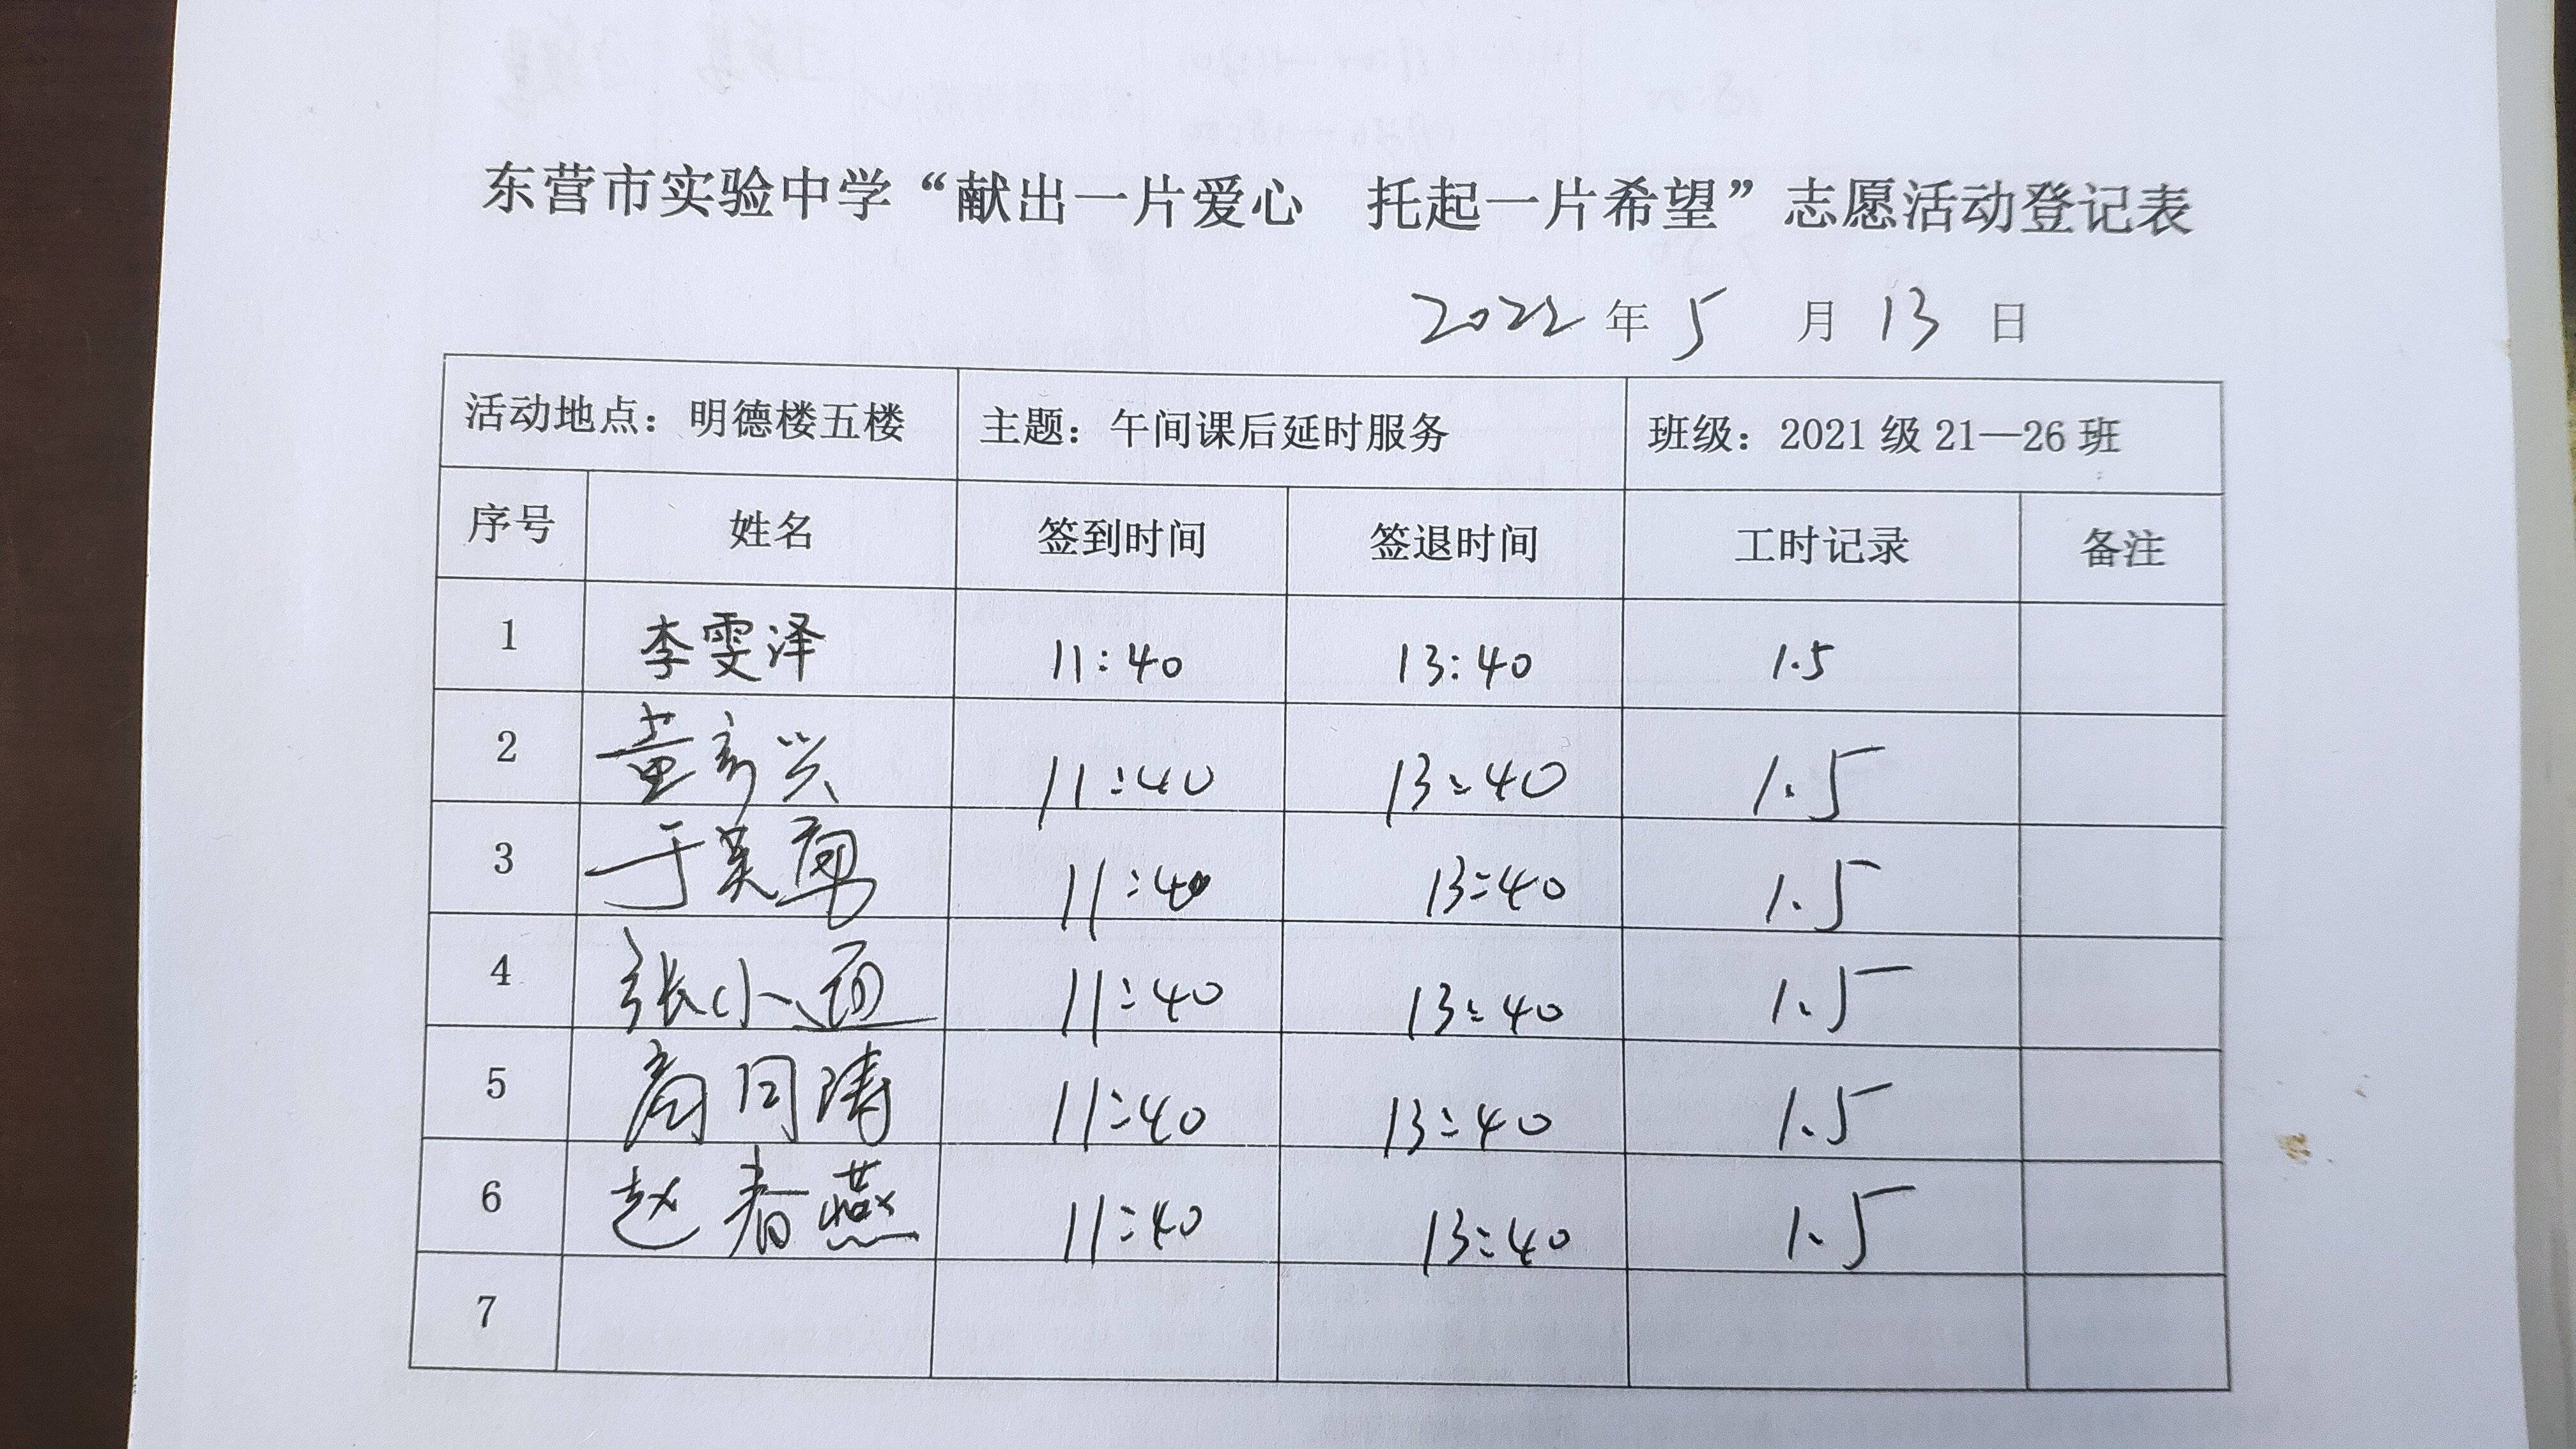 东营市实验中学“献出一片爱心 托起一片希望”志愿活动登记表
2022年5月13日
活动地点：明德楼五楼 主题：午间课后延时服务 班级：2021级21—26班
序号 姓名 签到时间 签退时间 工时记录 备注
1 李雯泽 11:40 13:40 1.5
2 董彦兴 11:40 13:40 1.5
3 于美菊 11:40 13:40 1.5
4 张小 11:40 13:40 1.5
5 商同涛 11:40 13:40 1.5
6 赵春燕 11:40 13:40 1.5
7